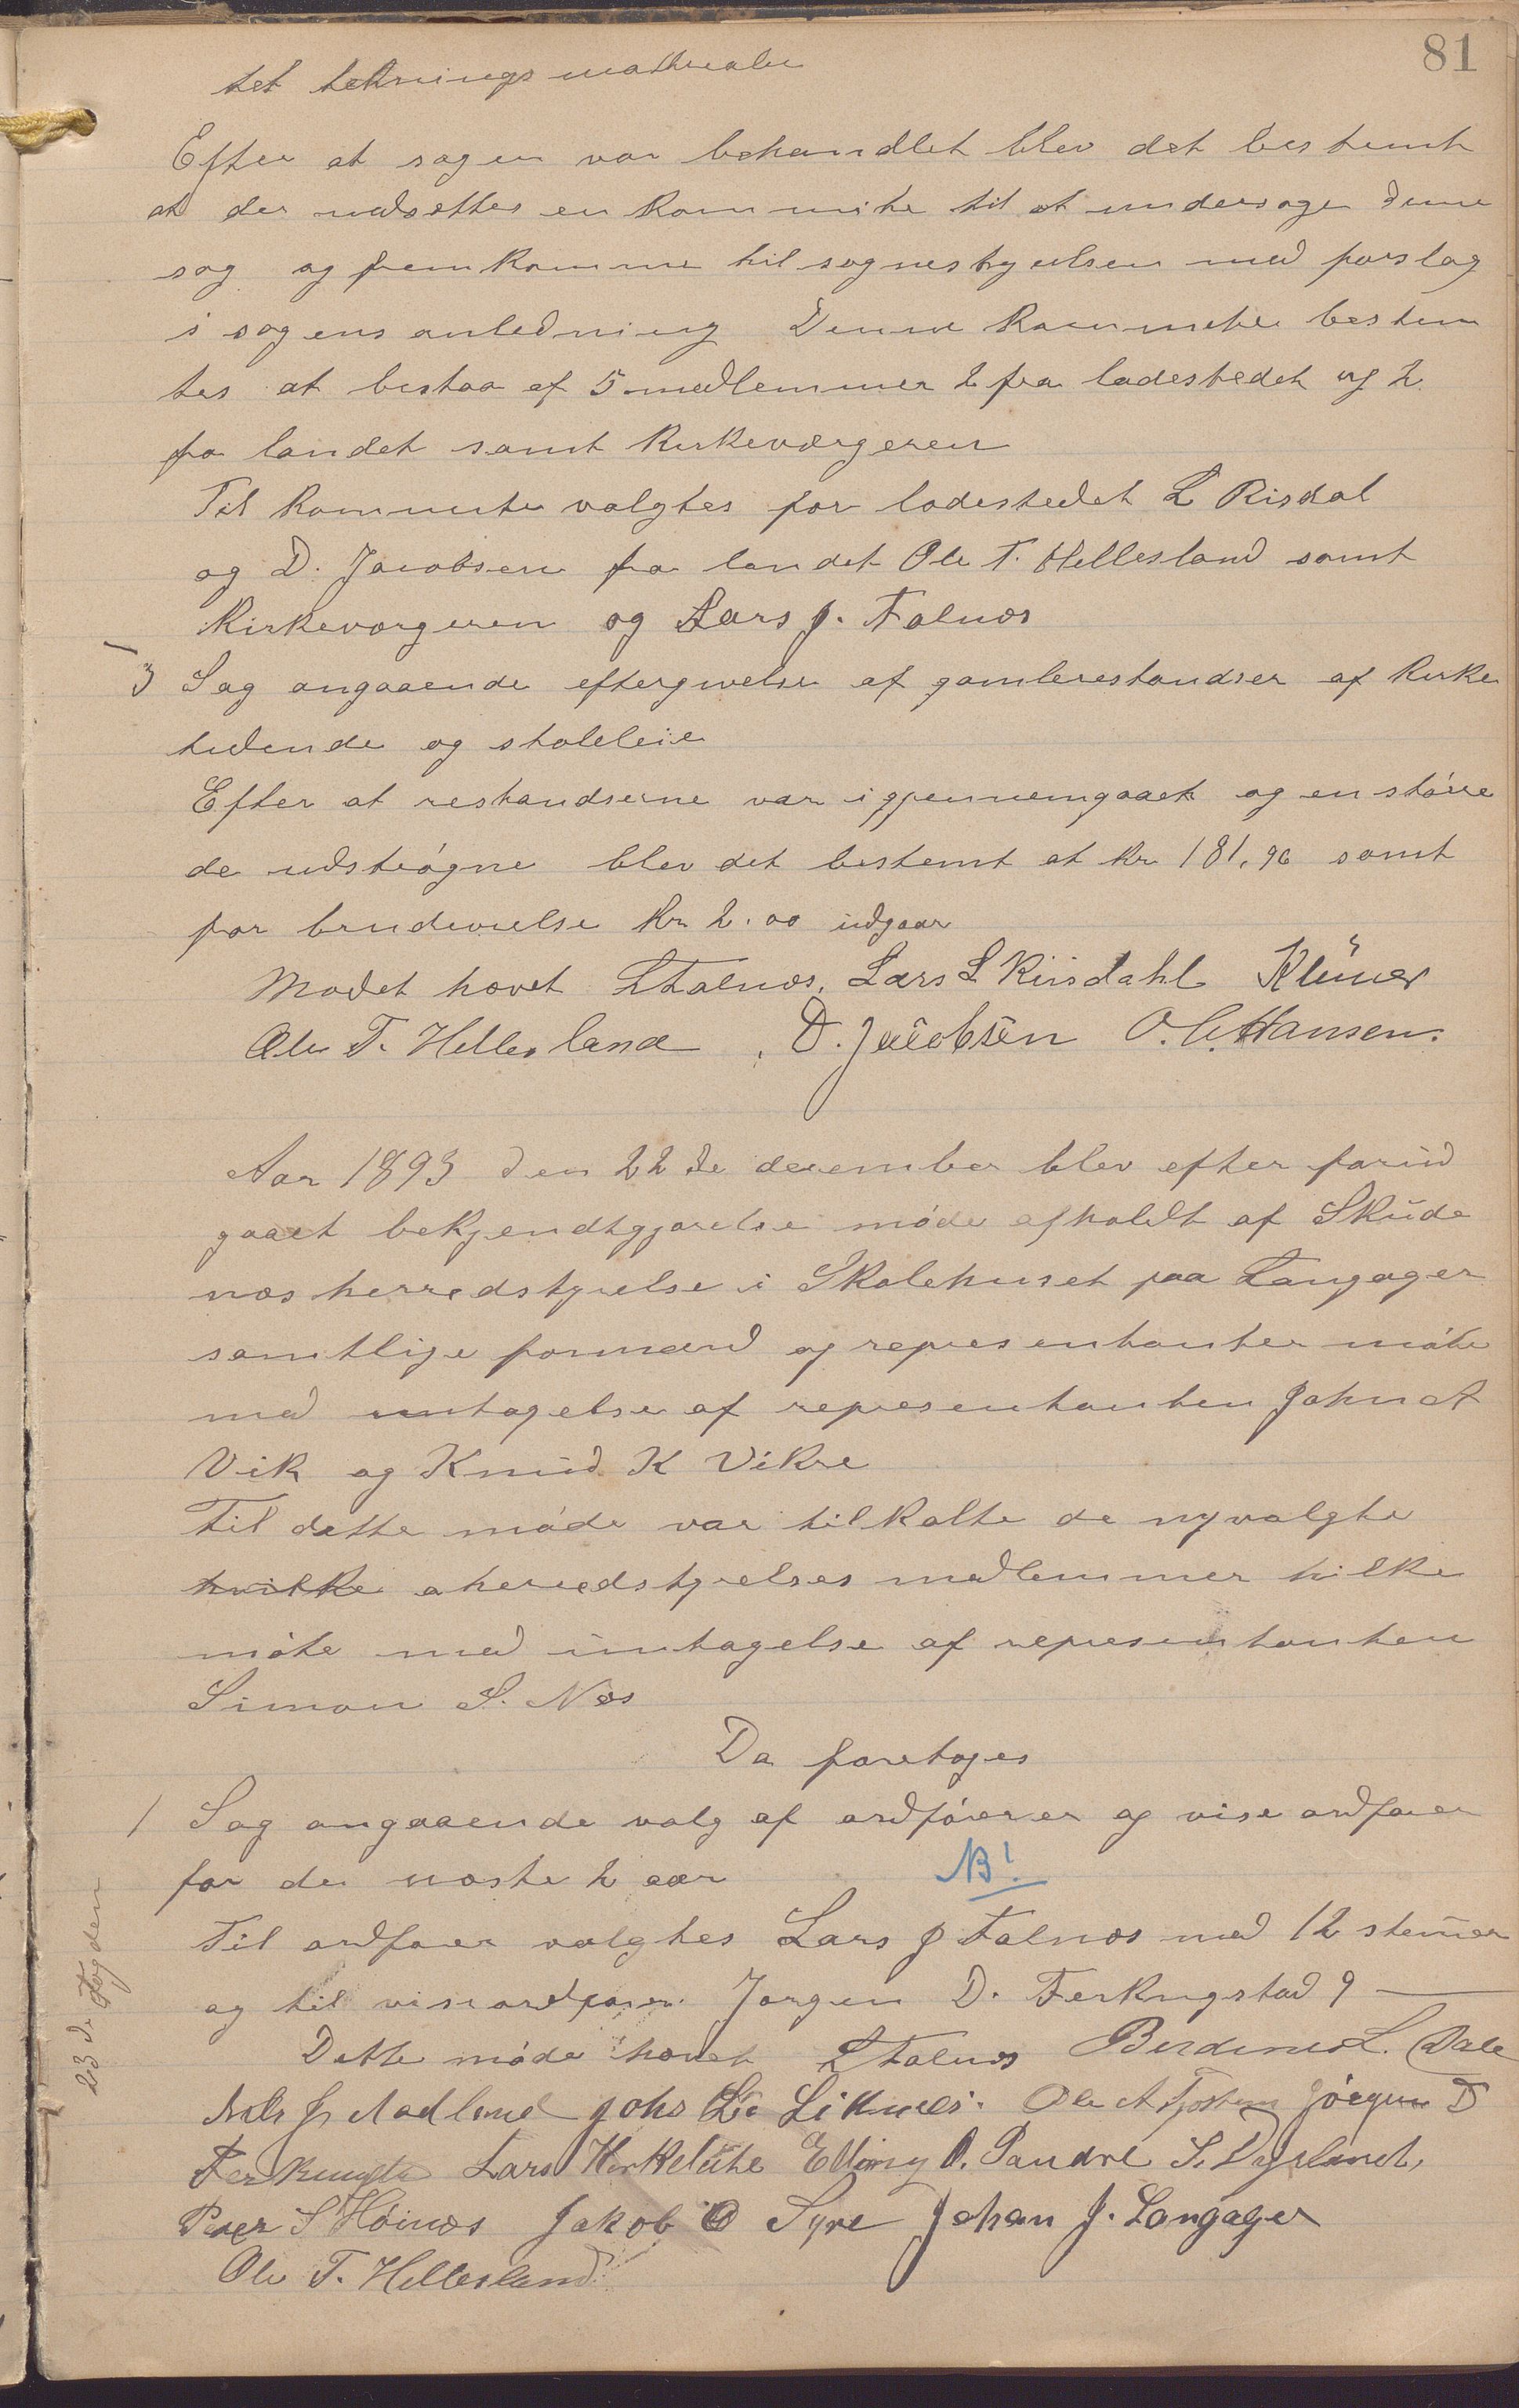 81
tet tekningsmatrialer
Efter at sagen var behandlet blev det bestemt
at der nedsettes en kommite til at undersøge denne
sag og fremkomme til sognestyrelsen med forslag
i sagens anledning Denne kommite bestem
tes at bestaa af 5 medlemmer 2 fra ladestedet og 2
fra landet samt kirkeværgeren
Til kommite valgtes for ladestedet L Risdal
og D. Jacobsen fra landet Ole T. Hellesland samt
Kirkeværgeren og Lars J. Falnæs
3 Sag angaaende eftergivelse af gamlerestandser af kirke
tidende og stoleleie
Efter at restandserne var igjennemgaaet og en større
de udstrøgne blev det bestemt at kr 181,96 samt
for brudevielse kr 2.00 udgaar
Mødet hævet LFalnæs, Lars L Riisdahl Klüwer
Ole T. Hellesland, D. Jacobsen O. C. Hansen.
Aar 1893 den 22de december blev efter forud
gaaet bekjendtgjørelse møde afholdt af Skude
næs herredstyrelse i Skolehuset paa Langager
samtlige formænd og representanter møte
med untagelse af representanten John A
Vik og Knud K Vikre
Til dette møde var tilkalte de nyvalgte
hvilke herredstyrelses medlemmer hilke
møte med untagelse af representanten
Simon S. Næs
Da foretoges
1 Sag angaaende valg af ordfører og vise ordfører
for de næste 2 aar NB!
Til ordfører valgtes Lars J Falnæs med 12 stemmer
og til viseordfører Jørgen D. Ferkingstad 9 —
Dette møde hævet LFalnæs Berdines L. Dale
Nils J. Aadland Johs L. Liknæs. Ole A Tjøstem Jørgen D
Ferkingsta Lars Hinkeleite Elling O. Sandve S. Dysland,
Peder S Høinæs Jakob O Syre Johan J. Langager
Ole T. Hellesland
23 de Fogden